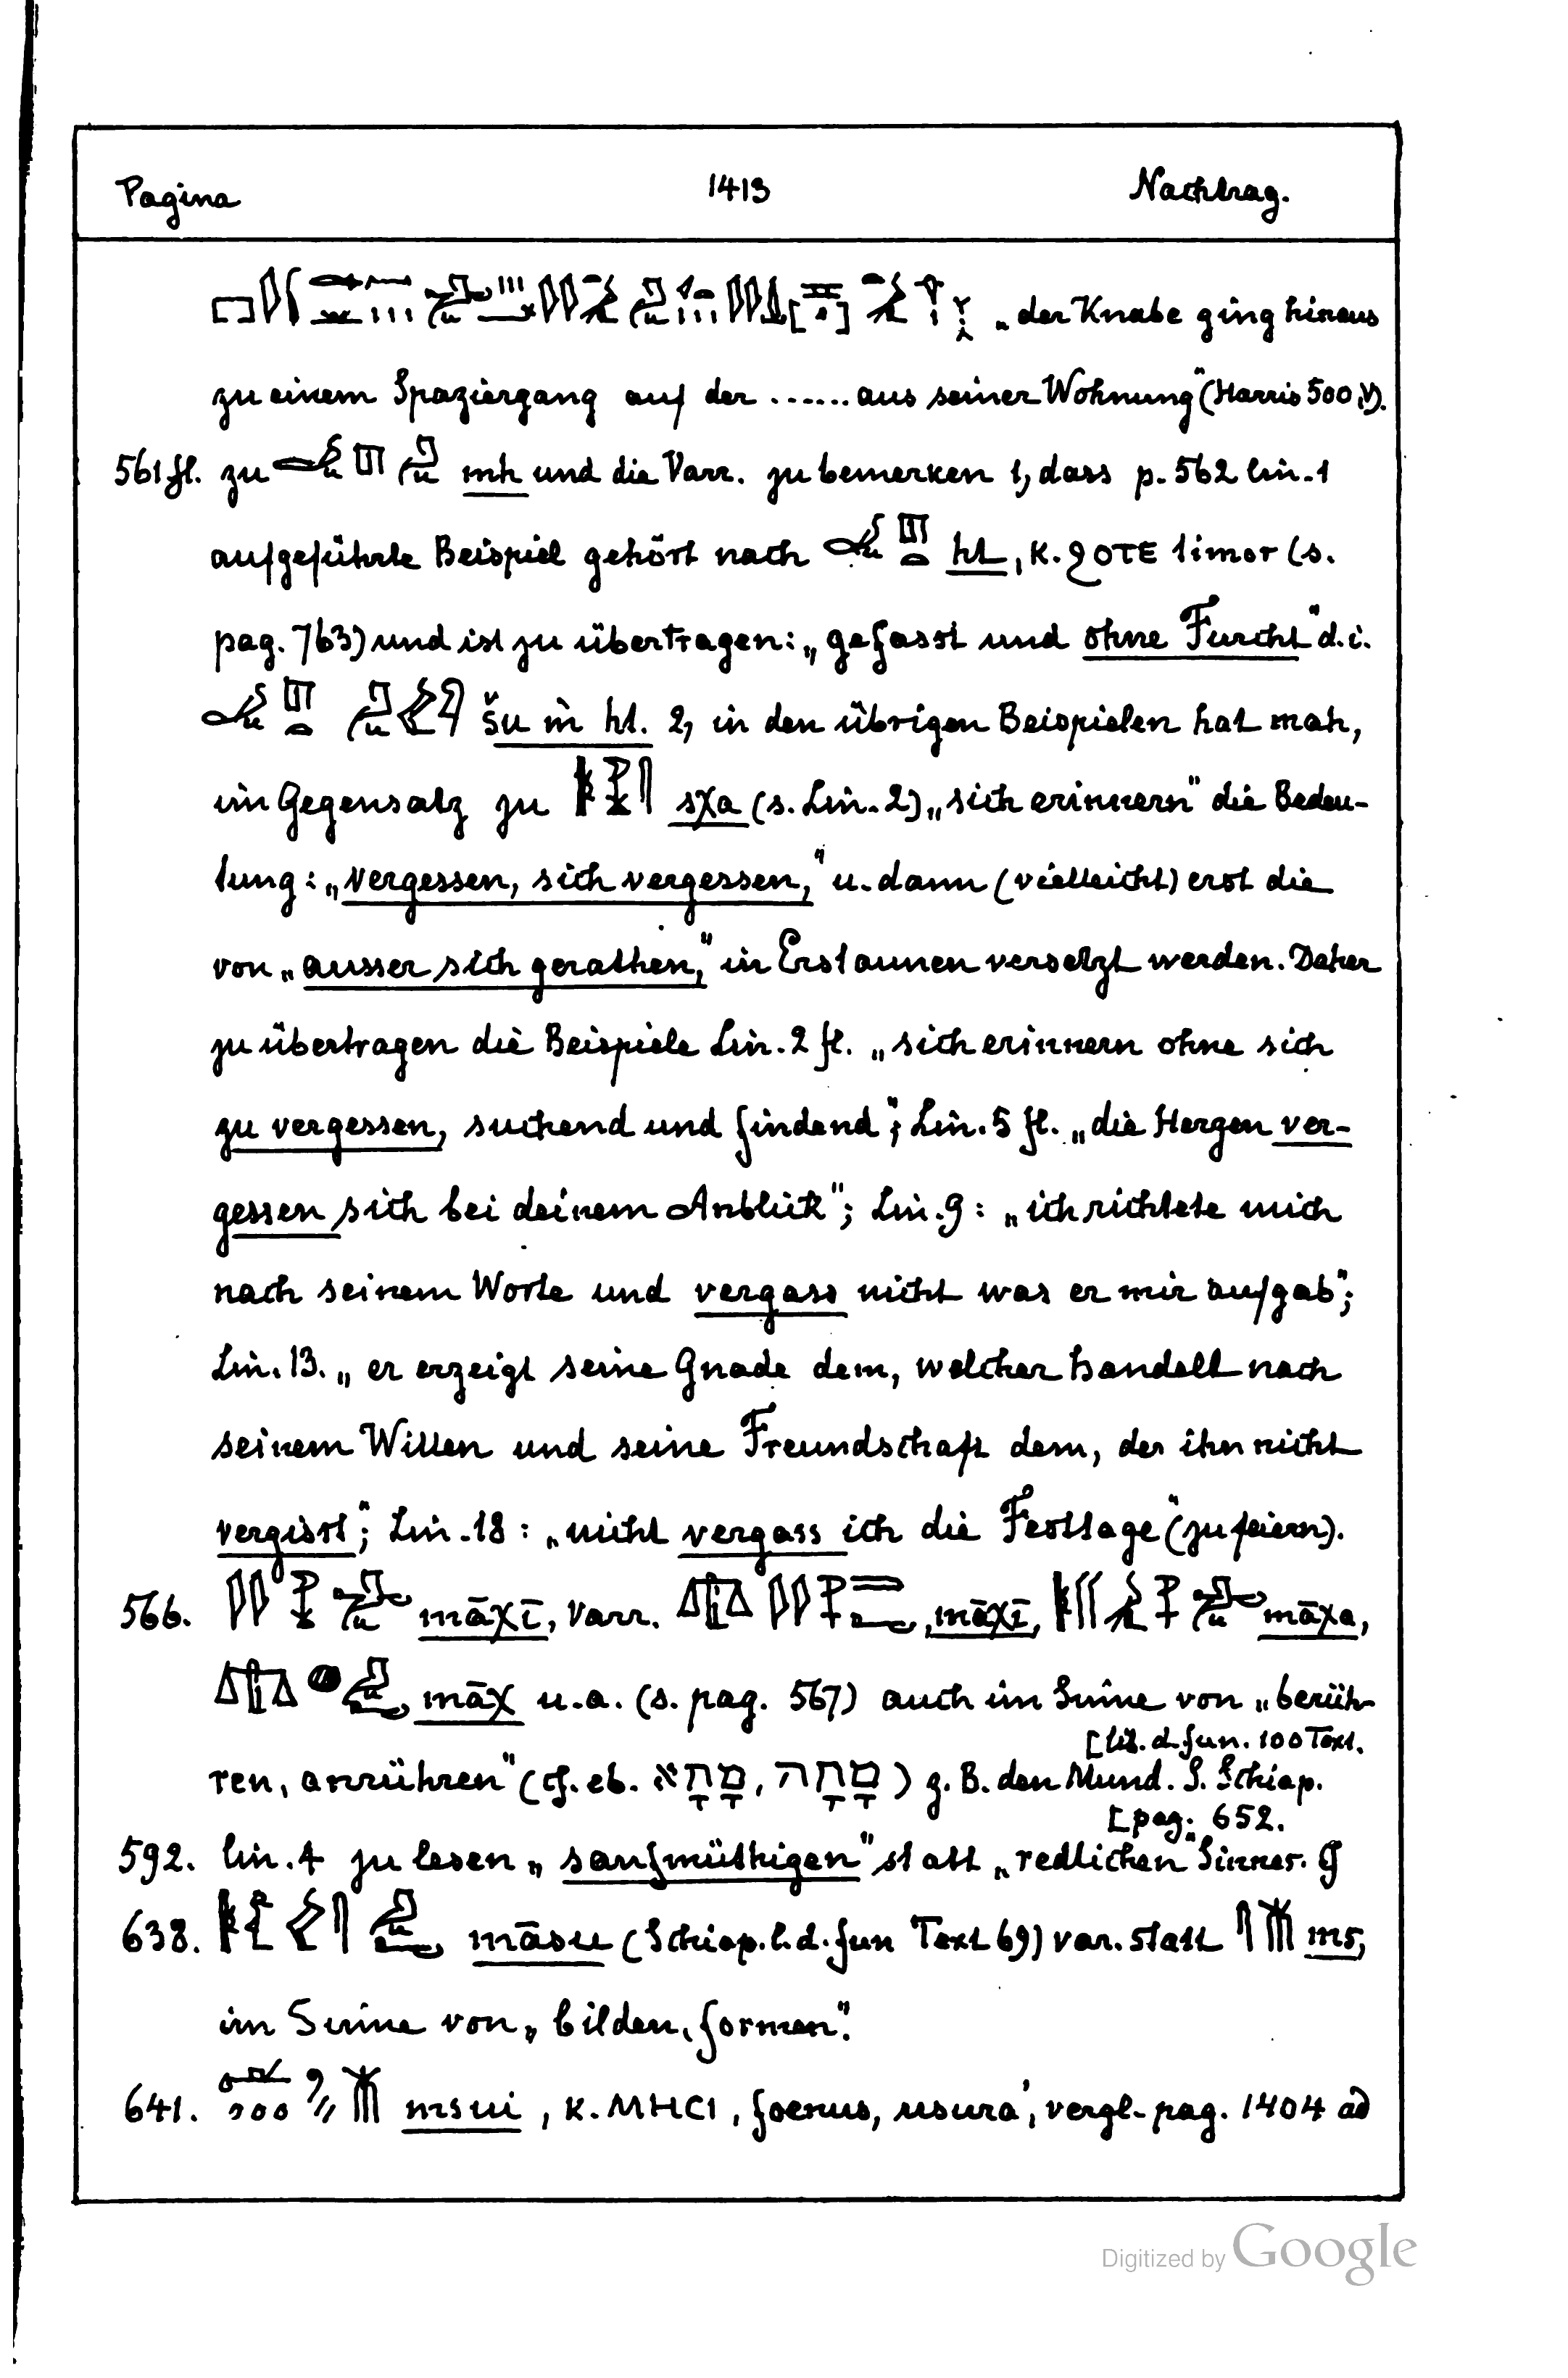 Pagina 1413 Nachtrag.
„der Knabe ging hinaus
zu einem Spaziergang auf der ...... aus seiner Wohnung“ (Harris 500, V).
561 fl. zu mh und die Varr. zu bemerken 1, dass p. 562 lin. 1
aufgeführte Beispiel gehört nach ht, K. ϩΟΤΕ timor (s.
pag. 763) und ist zu übertragen: „gefasst und ohne Furcht“ d. i.
šu m ht. 2, in den übrigen Beispielen hat mah,
im Gegensatz zu sχa (s. Lin. 2) „sich erinnern“ die Bedeu-
tung: „vergessen, sich vergessen,“ u. dann (vielleicht) erst die
von „ausser sich gerathen,“ in Erstaunen versetzt werden. Daher
zu übertragen die Beispiele Lin. 2 fl. „sich erinnern ohne sich
zu vergessen, suchend und findend“; Lin. 5 fl. „die Herzen ver-
gessen sich bei deinem Anblick“; Lin. 9: „ich richtete mich
nach seinem Worte und vergass nicht was er mir aufgab“;
Lin. 13. „er erzeigt seine Gnade dem, welcher handelt nach
seinem Willen und seine Freundschaft dem, der ihn nicht
vergisst“; Lin. 18: „nicht vergass ich die Festtage“ (zu feiern).
566. māχī, Varr. , māχī, māχa,
māχ u. a. (s. pag. 567) auch im Sinne von „berüh-
[lib. d. fun. 100 Text.
ren, anrühren“ (cf. eb. מָחָא, מָחָה) z. B. den Mund. S. Schiap.
[pag. 652.
592. lin. 4 zu lesen „sanfmüthigen“ statt „redlichen“ Sinnes. cf
638. māsu (Schiap. l. d. fun Text 69) var. statt ms,
im Sinne von „bilden, formen“.
641. msui, K. ΜΗСΙ, foenus, usura, vergl. pag. 1404 ad
Digitized by Google